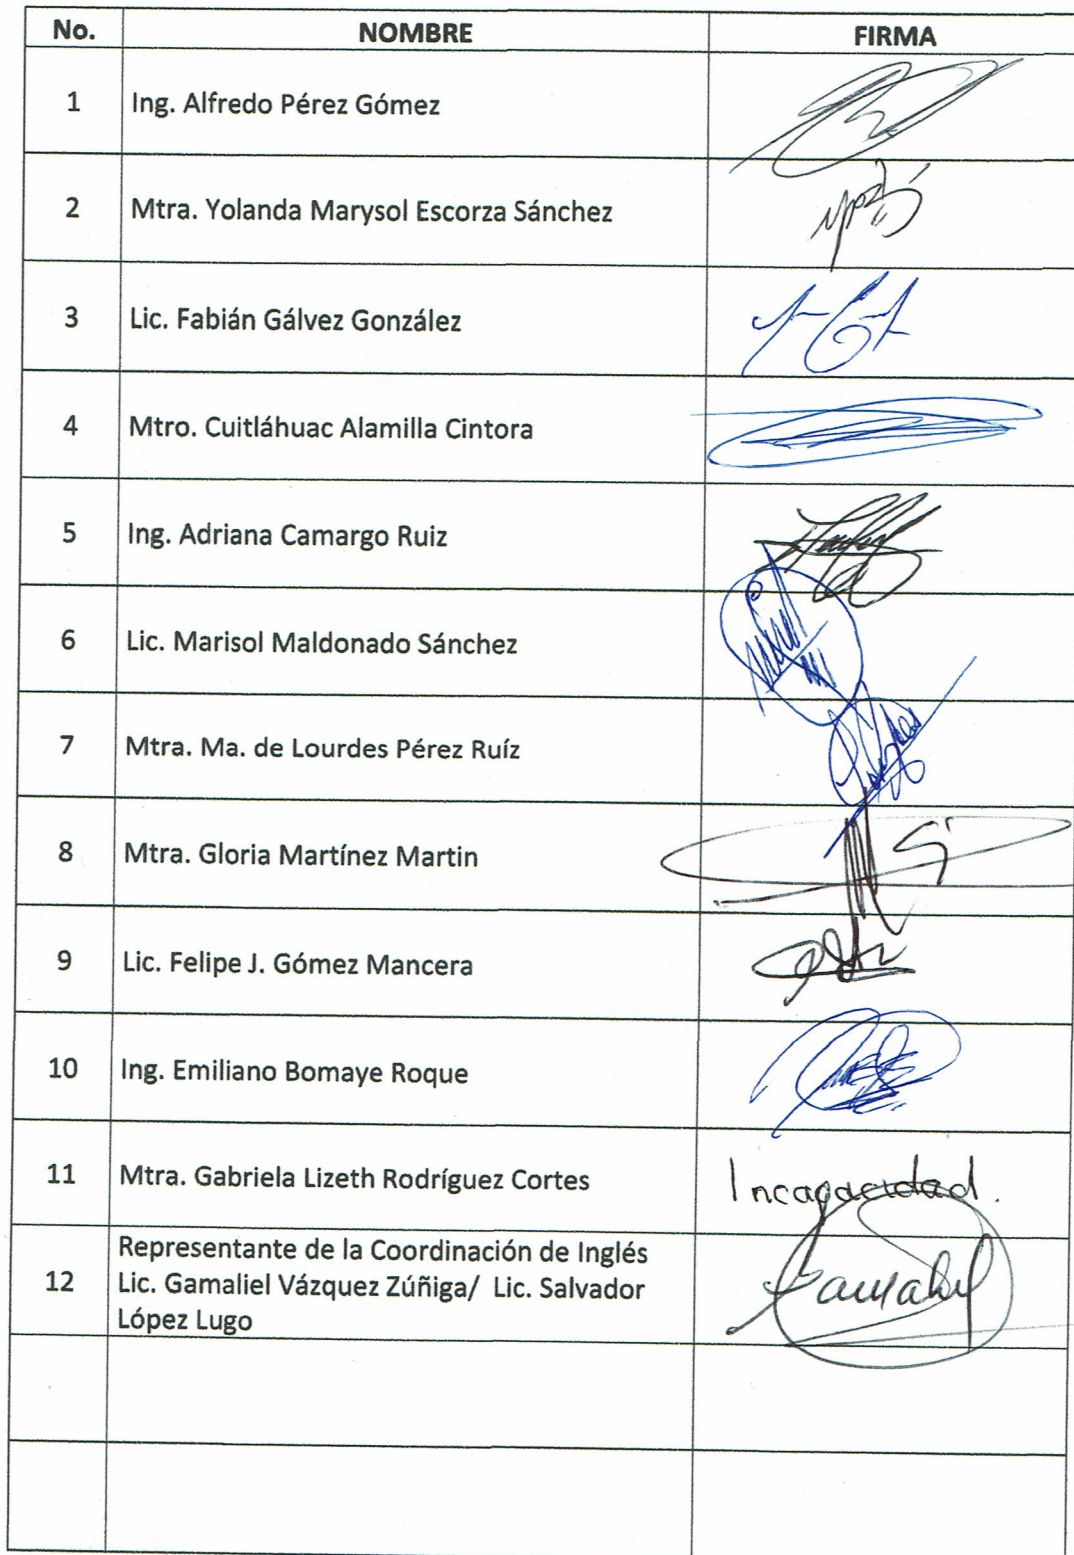 No. NOMBRE FIRMA
1 Ing. Alfredo Pérez Gómez
2 Mtra. Yolanda Marysol Escorza Sánchez
3 Lic. Fabián Gálvez González
4 Mtro. Cuitláhuac Alamilla Cintora
5 Ing. Adriana Camargo Ruiz
6 Lic. Marisol Maldonado Sánchez
7 Mtra. Ma. de Lourdes Pérez Ruíz
8 Mtra. Gloria Martínez Martin
9 Lic. Felipe J. Gómez Mancera
10 Ing. Emiliano Bomaye Roque
11 Mtra. Gabriela Lizeth Rodríguez Cortes Incapacidad.
Representante de la Coordinación de Inglés
12 Lic. Gamaliel Vázquez Zúñiga/ Lic. Salvador
López Lugo